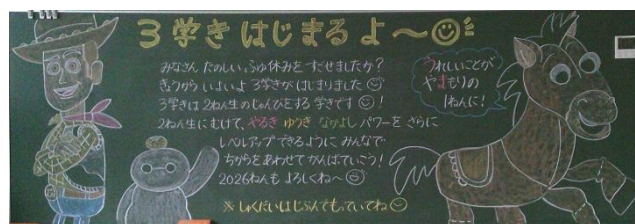 3学きはじまるよ～
みなさん たのしい、ふゆ休みを すごせましたか？
きょうから いよいよ 3学きが はじまりました
3学きは 2ねん生の じゅんびをする 学きです！
2ねん生にむけて、やるき ゆうき なかよし パワーを さらに
レベルアップできるように みんなで
ちからをあわせて がんばっていこう！
2026ねんも よろしくね〜
※しゅくだいは じぶんでもっていてね
うれしいことが
やまもりの
1ねんに！